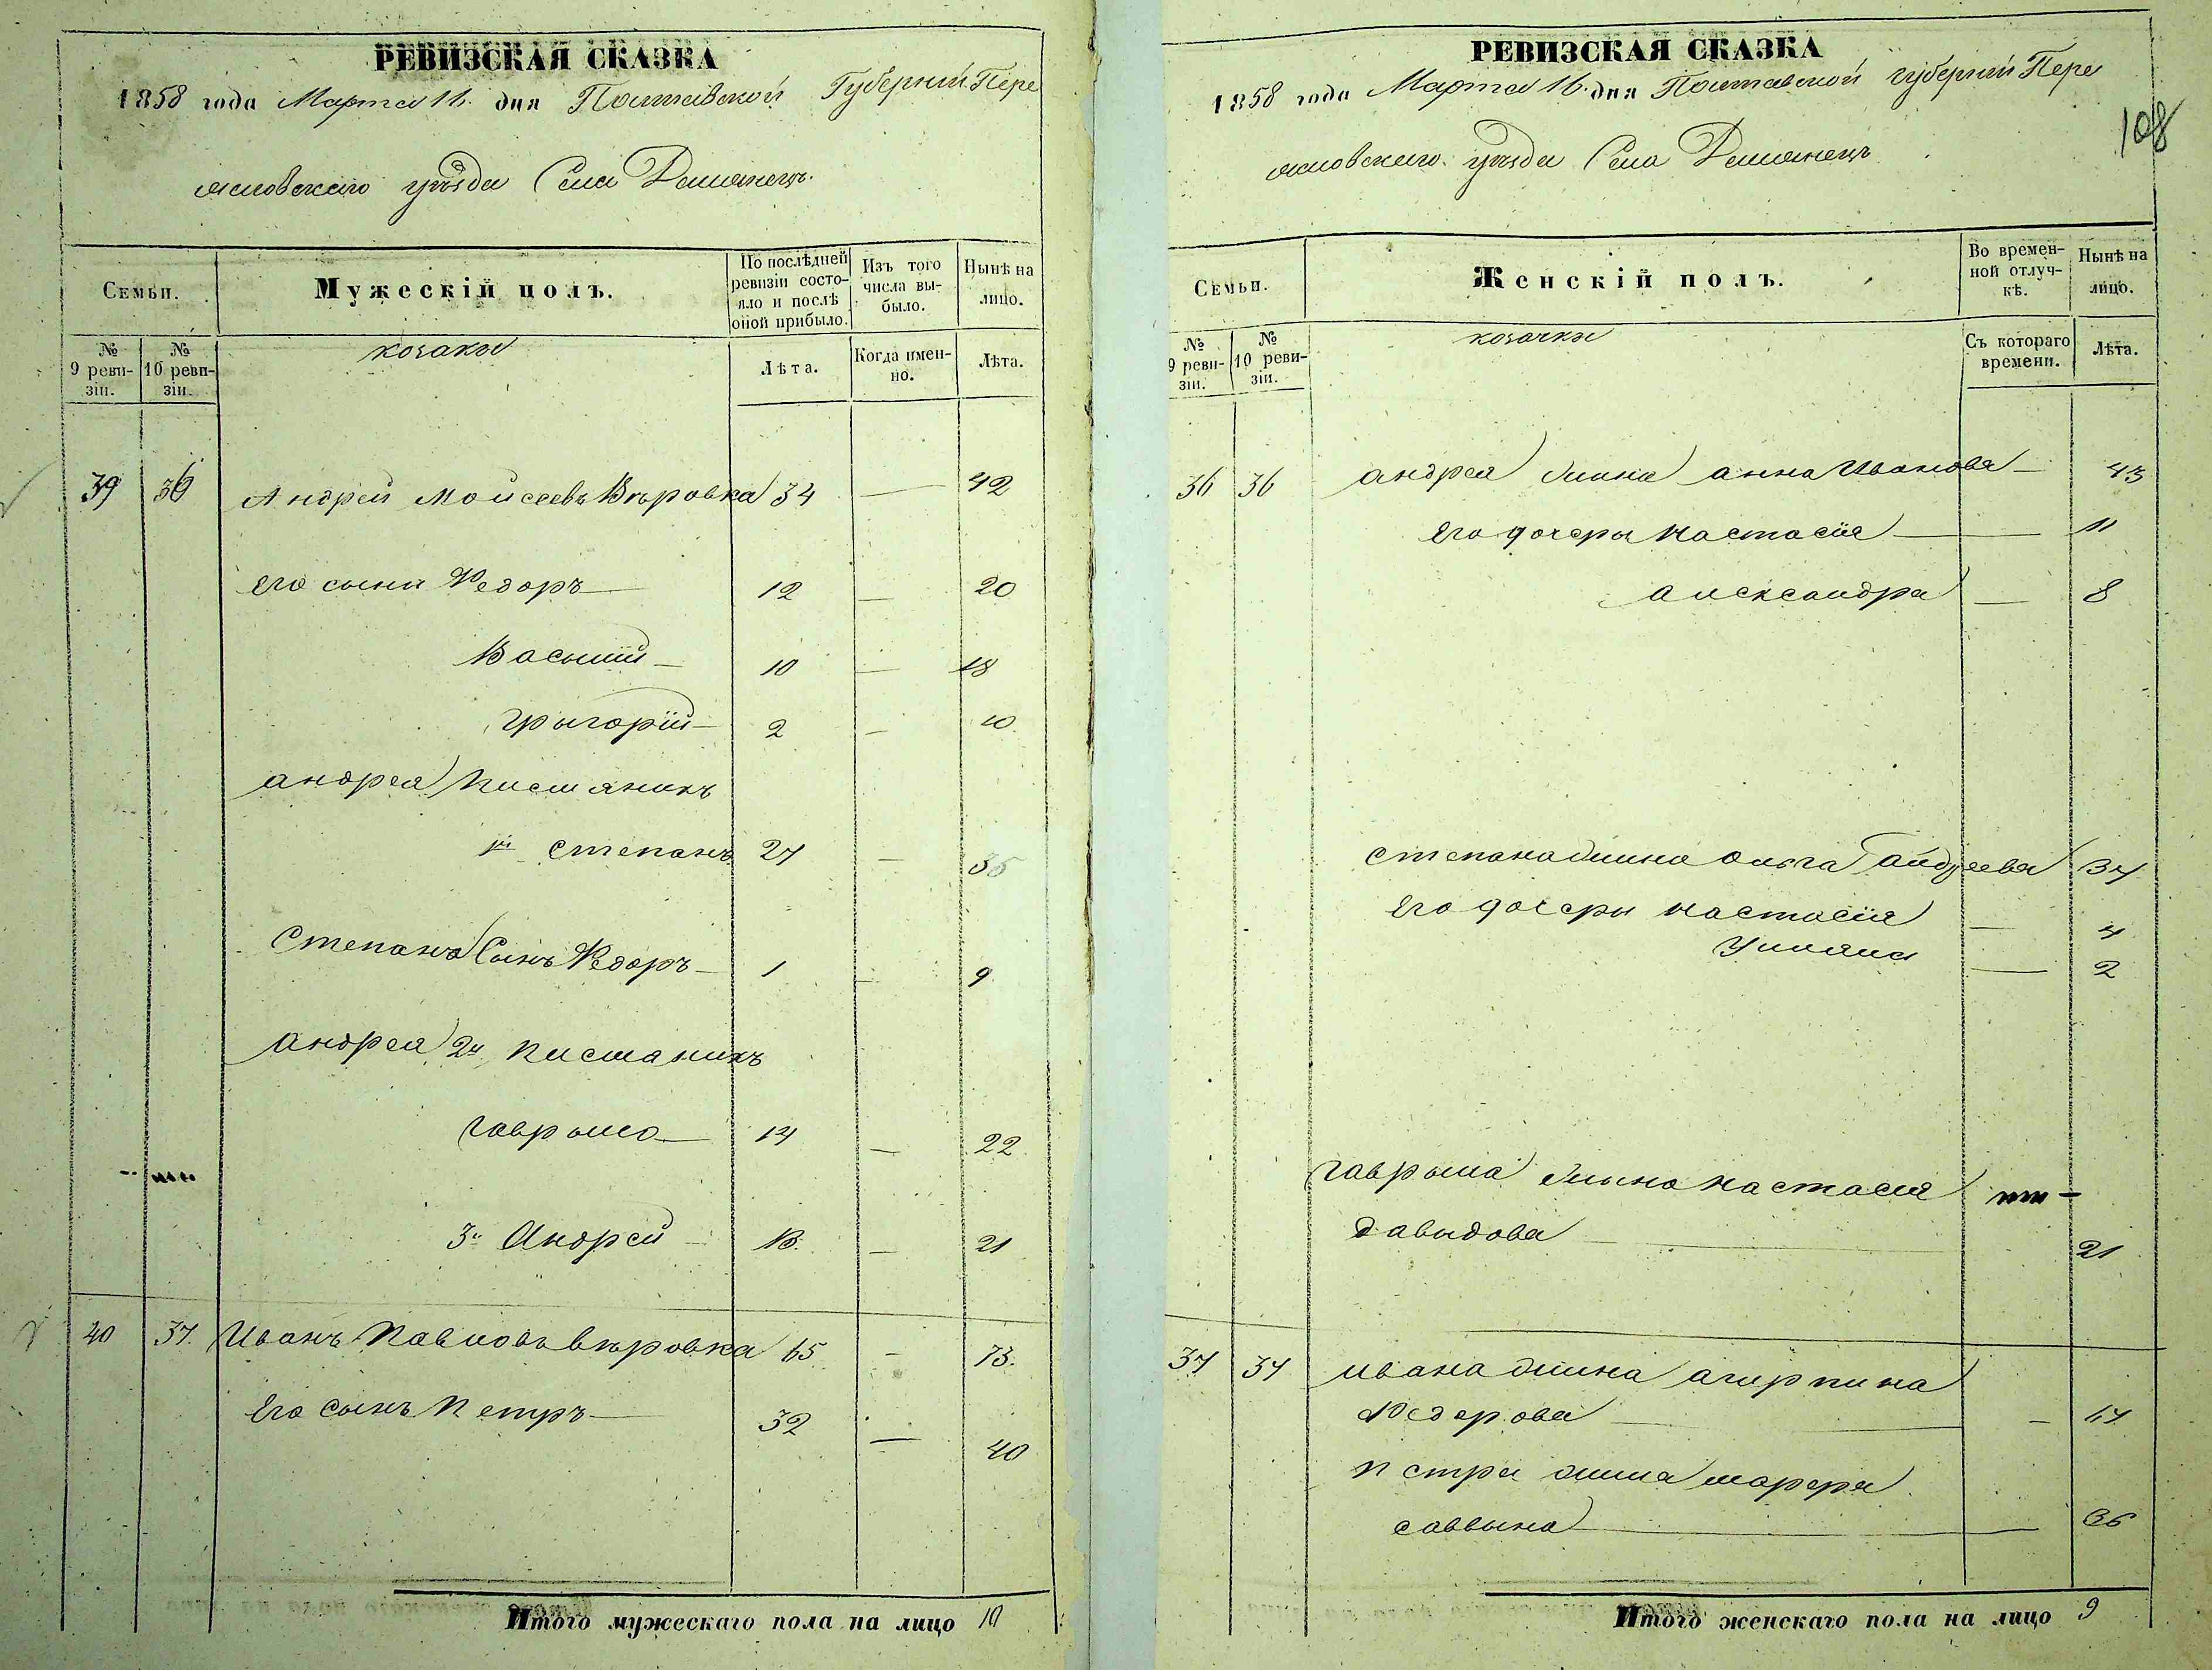 РЕВИЗСКАЯ СКАЗКА
1858 года Марта 16. дня Полтавской Губерніи Пере
яславскаго уѣзда Села
Семьи.
Мужескій полъ.
По послѣдней ревизіи состояло и послѣ оной прибыло.
Изъ того числа выбыло.
Нынѣ на лицо.
№ 9 ревизіи.
№ 10 ревизіи.
козаки
Лѣта.
Когда именно.
Лѣта.
39 36 Андрей Мойсеевъ Вѣровка 34 — 42
его сыни Федоръ — 12 — 20
Василій — 10 — 18
Григорій — 2 — 10
андрея
1й Степанъ 27 — 35
Степана Сынъ Федоръ — 1 — 9
андрея 2й
гаврыло — 14 — 22
3й Андрей — 13. — 21
40 37. Иванъ Павловъ вѣровка 65 — 73.
Его сынъ Петръ — 32 — 40
Итого мужескаго пола на лицо 10
РЕВИЗСКАЯ СКАЗКА
1858 года Марта 16. дня Полтавской губерніи Пере
108
яславскаго уѣзда Села
Семьи.
Женскій полъ.
Во временной отлучкѣ.
Нынѣ на лицо.
№ 9 ревизіи.
№ 10 ревизіи.
козачки
Съ котораго времени.
Лѣта.
36 36 андрея жина анна Иванова — 43
Его дочеры настасія — 11
александра — 8
степана жина ольга андреева 37
Его дочеры настасія — 4
Уляна — 2
гаврыла жына настасія
давыдова — 21
37 37 ивана жина агирпина
Федерова — 67
петра жина марфа
саввына — 36
Итого женскаго пола на лицо 9